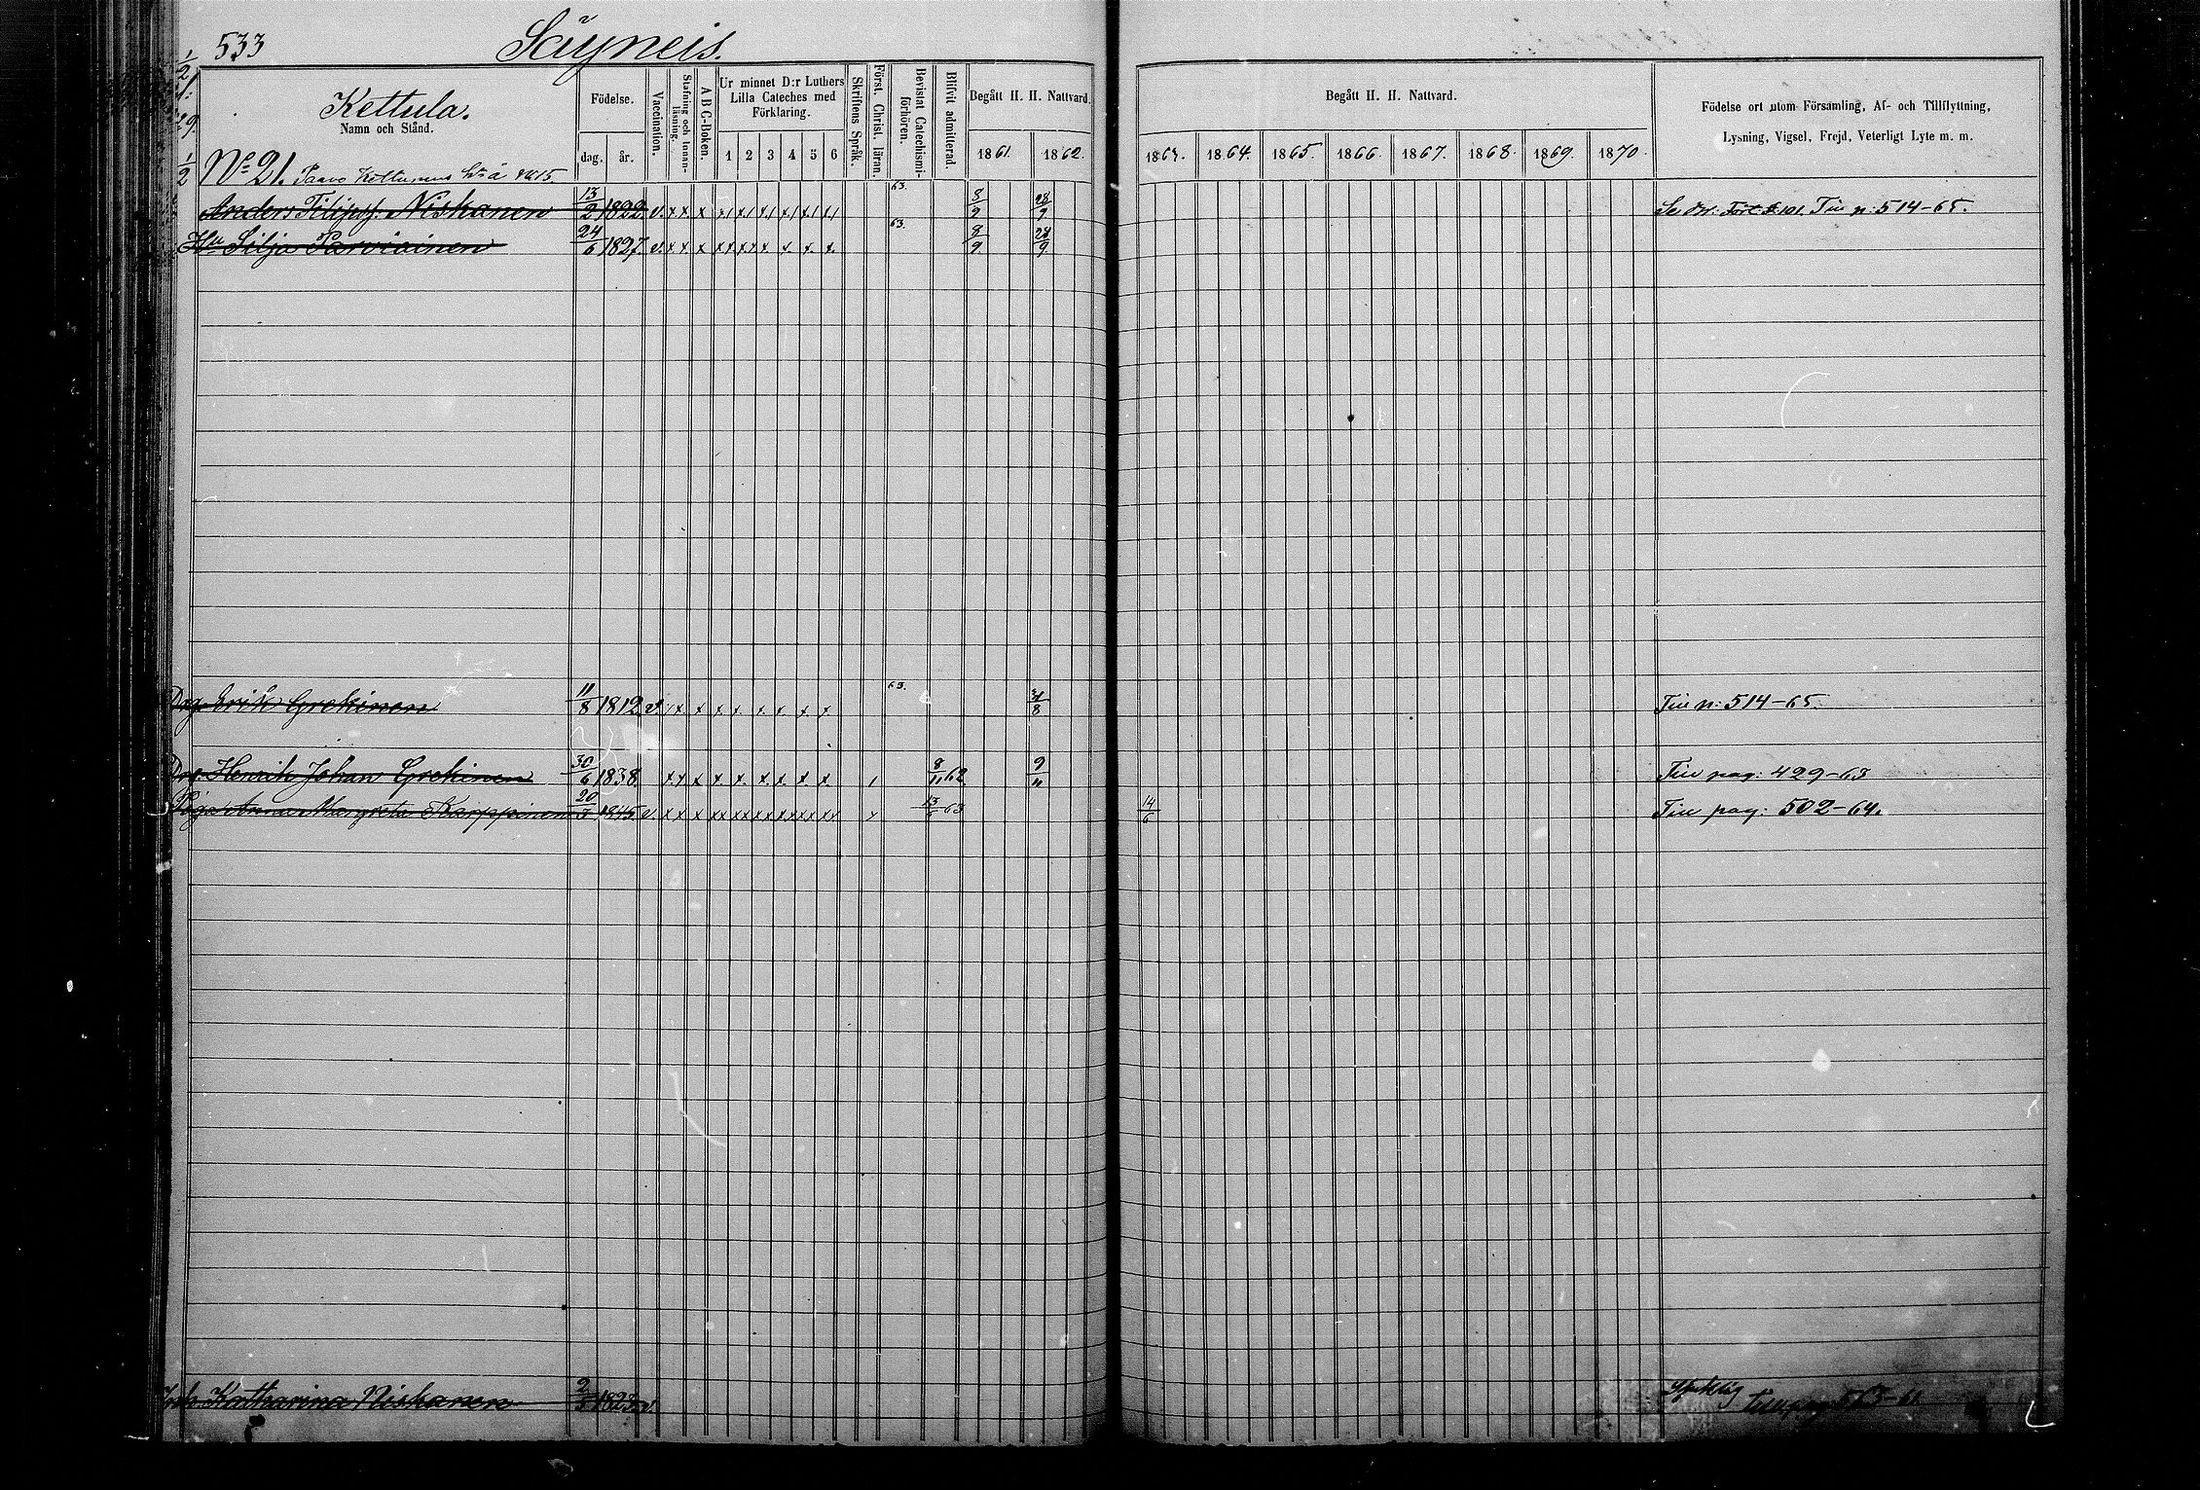 533 Säyneis.
Kettula.
Namn och Stånd.
Födelse.
dag. år.
Vaccination.
Stafning och Innanläsning.
A B C-Boken.
Ur minnet D:r Luthers Lilla Cateches med Förklaring.
1 2 3 4 5 6
Skriftens Språk.
Först. Christ. läran.
Bevistat Catechismiförhören.
Blifvit admitterad.
Begått H. H. Nattvard.
1861. 1862.
Begått H. H. Nattvard.
1863. 1864. 1865. 1866. 1867. 1868. 1869. 1870.
Födelse ort utom Församling, Af- och Tillflyttning,
Lysning, Vigsel, Frejd, Veterligt Lyte m. m.
No 21. Paavo
Anders Filipsf. Niskanen 13/2 1822. v. x x x x/ x/ x/ x/ x/ x/ 63. 8/9 28/9 101. Till p: 514-65.
Hu Silja Parviainen 24/6 1827. v. x x x 63. 8/9 28/9
Drg. Erik Grekinen 11/8 1812. v. x x x x x x x x 63. Till p: 514-65.
Drg. Henrik Johan Grekinen 30/6 1838. x x x x x x x x x 8/11 62. 9/11 Till pag: 429-63
Piga Anna Margreta Karppinen 1845. v. x x x 63 14/6 Till pag: 502-64.
Katharina Niskanen 1823. v. till pag 563-61